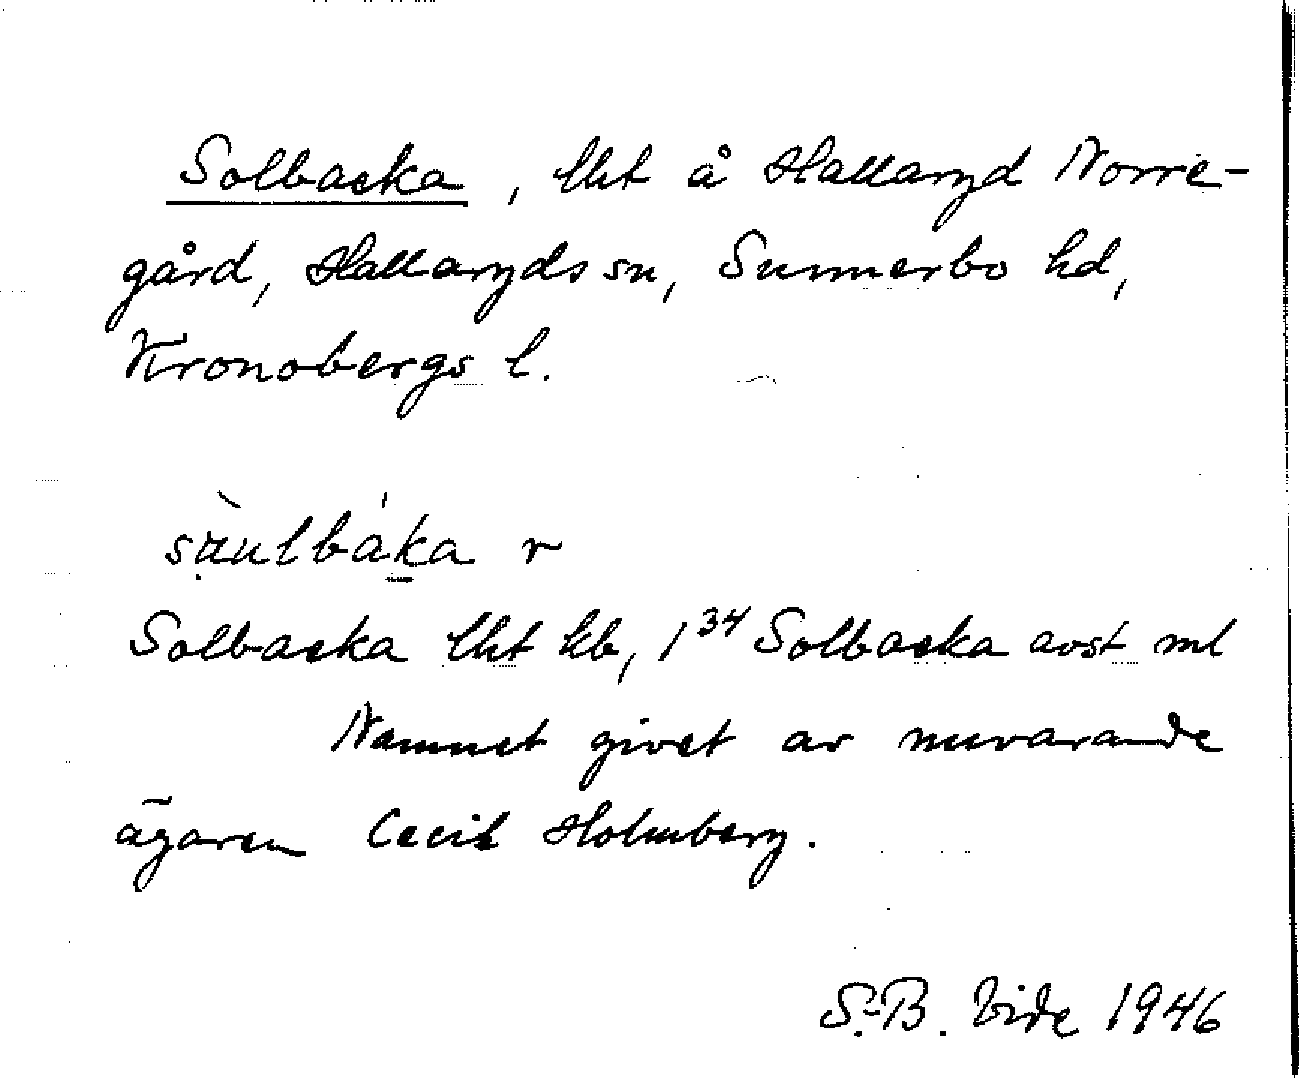 Solbacka, lht å Hallaryd Norre-
gård, Hallaryds sn, Sunnerbo hd,
Kronobergs l.
sàulbáka r
Solbacka lht hb, 1³⁴ Solbacka avst ml
Namnet givet av nuvarande
ägaren Cecil Holmberg.
S.-B. Vide 1946